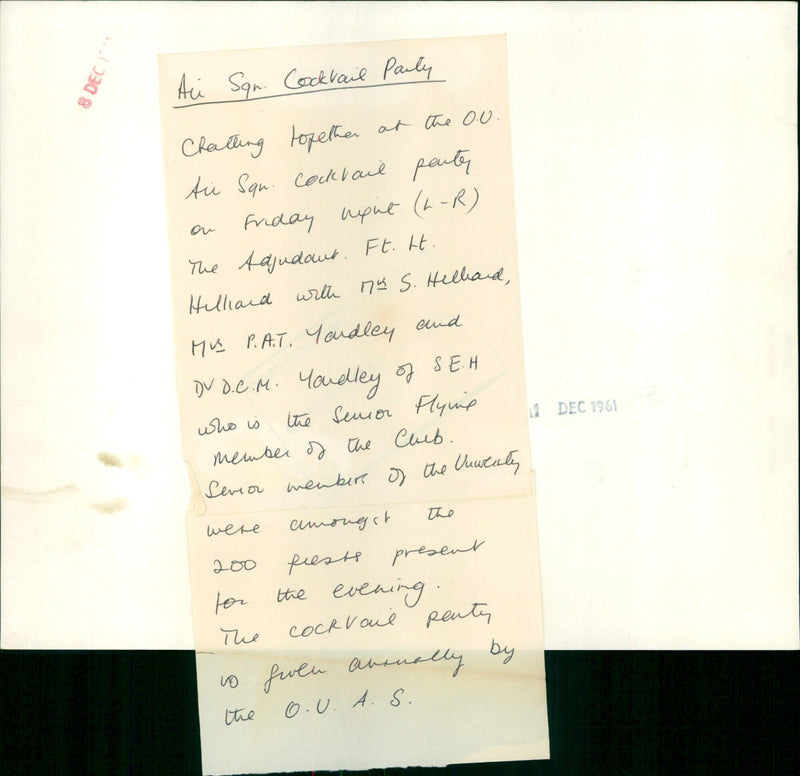 8 DEC
Air Sqn. Cocktail Party
Chatting together at the O.U.
Air Sqn. Cocktail party
on Friday night (L-R)
The Adjudant. Ft. Lt.
Hilliard with Mrs S. Hilliard,
Mrs P.A.T. Yardley and
Dr D.C.M. Yardley of S.E.H
who is the Senior Flying
Member of the Club.
Senior members of the University
were amongst the
200 guests present
for the evening.
The cocktail party
is given annually by
the O.U.A.S.
DEC 1961